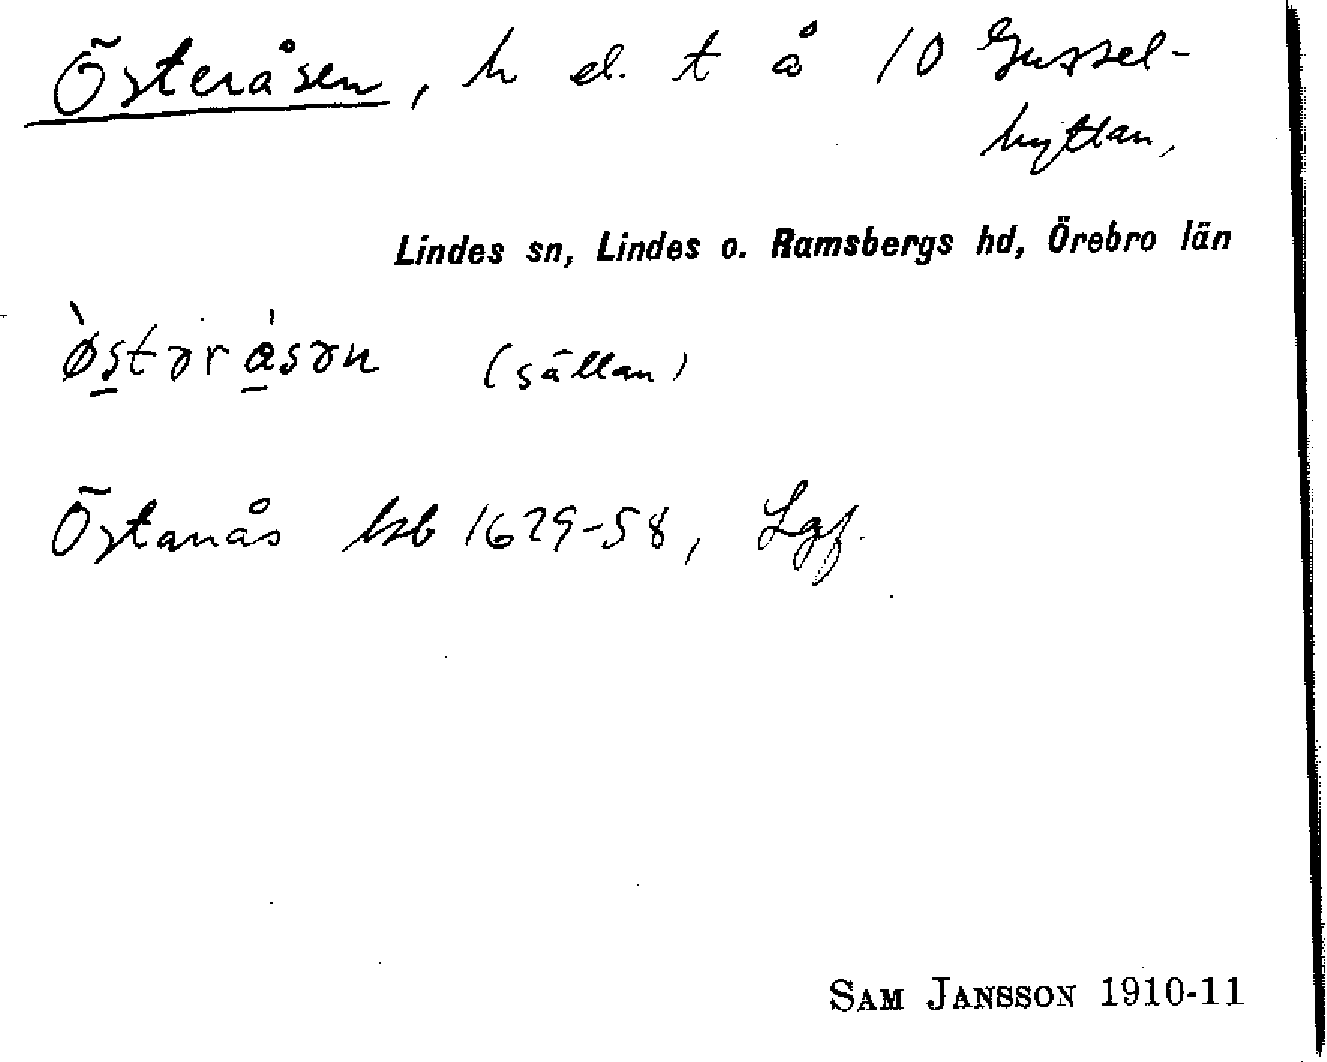 Österåsen, h el. t å 10 Gussel-
hyttan,
Lindes sn, Lindes o. Ramsbergs hd, Örebro län
ø̀stərásən (sällan)
Östanås hsb 1629-58, Lgf.
SAM JANSSON 1910-11